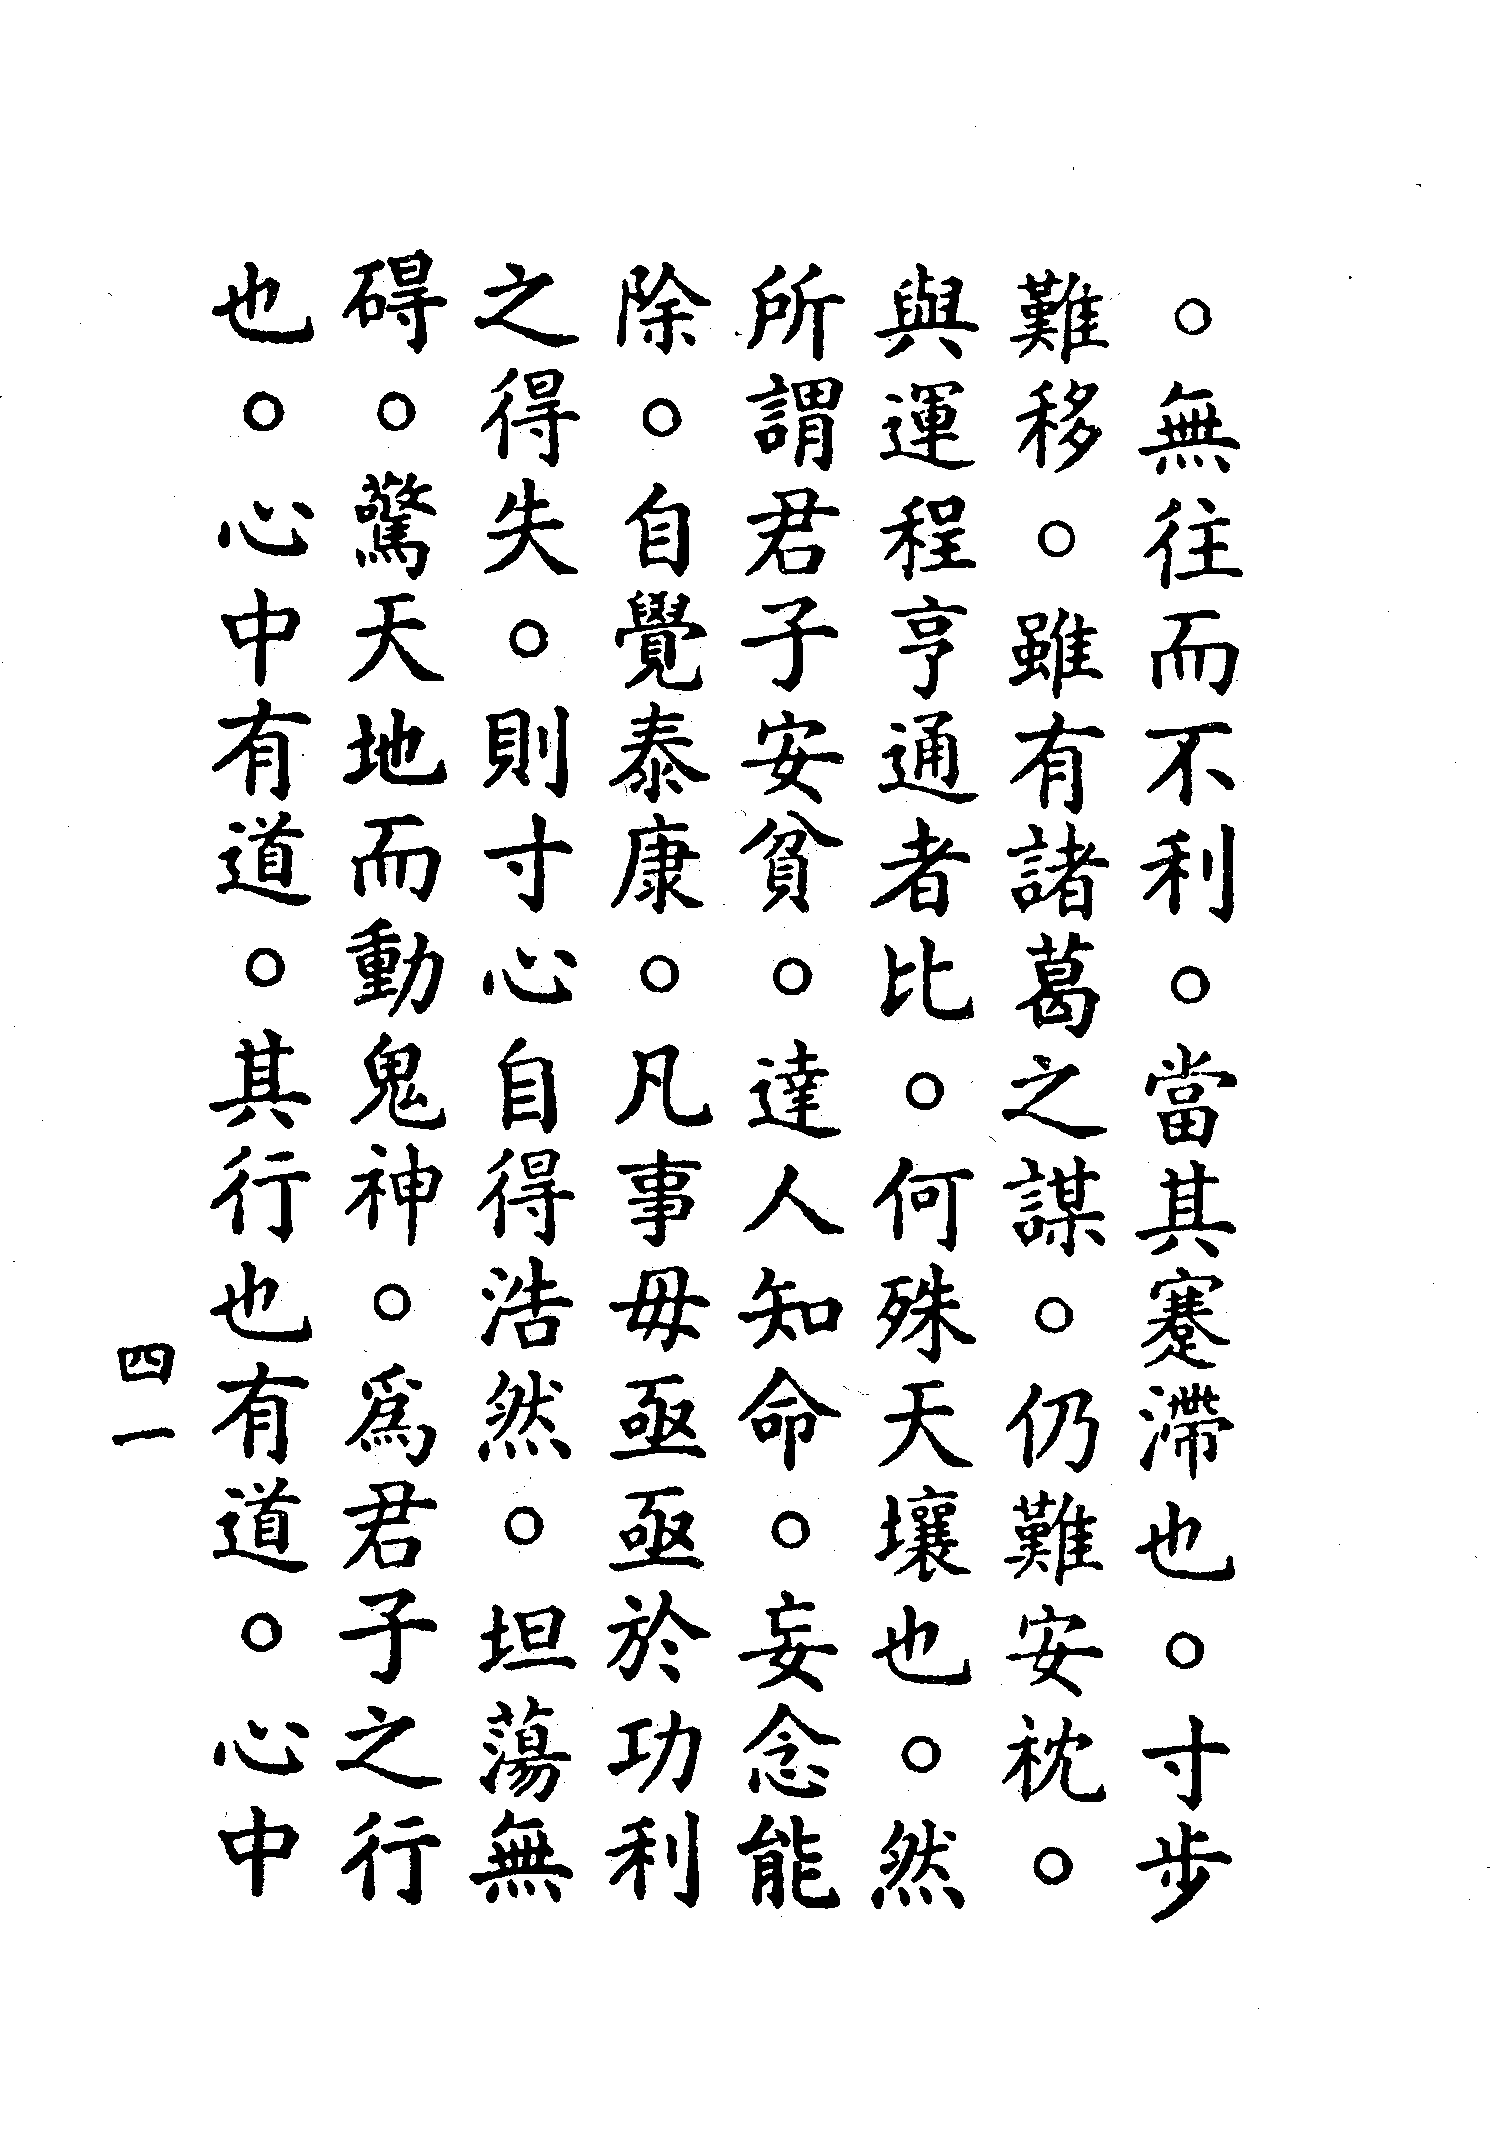 。無往而不利。當其蹇滯也。寸步
難移。雖有諸葛之謀。仍難安枕。
與運程亨通者比。何殊天壤也。然
所謂君子安貧。達人知命。妄念能
除。自覺泰康。凡事毋亟亟於功利
之得失。則寸心自得浩然。坦蕩無
碍。驚天地而動鬼神。爲君子之行
也。心中有道。其行也有道。心中
四一